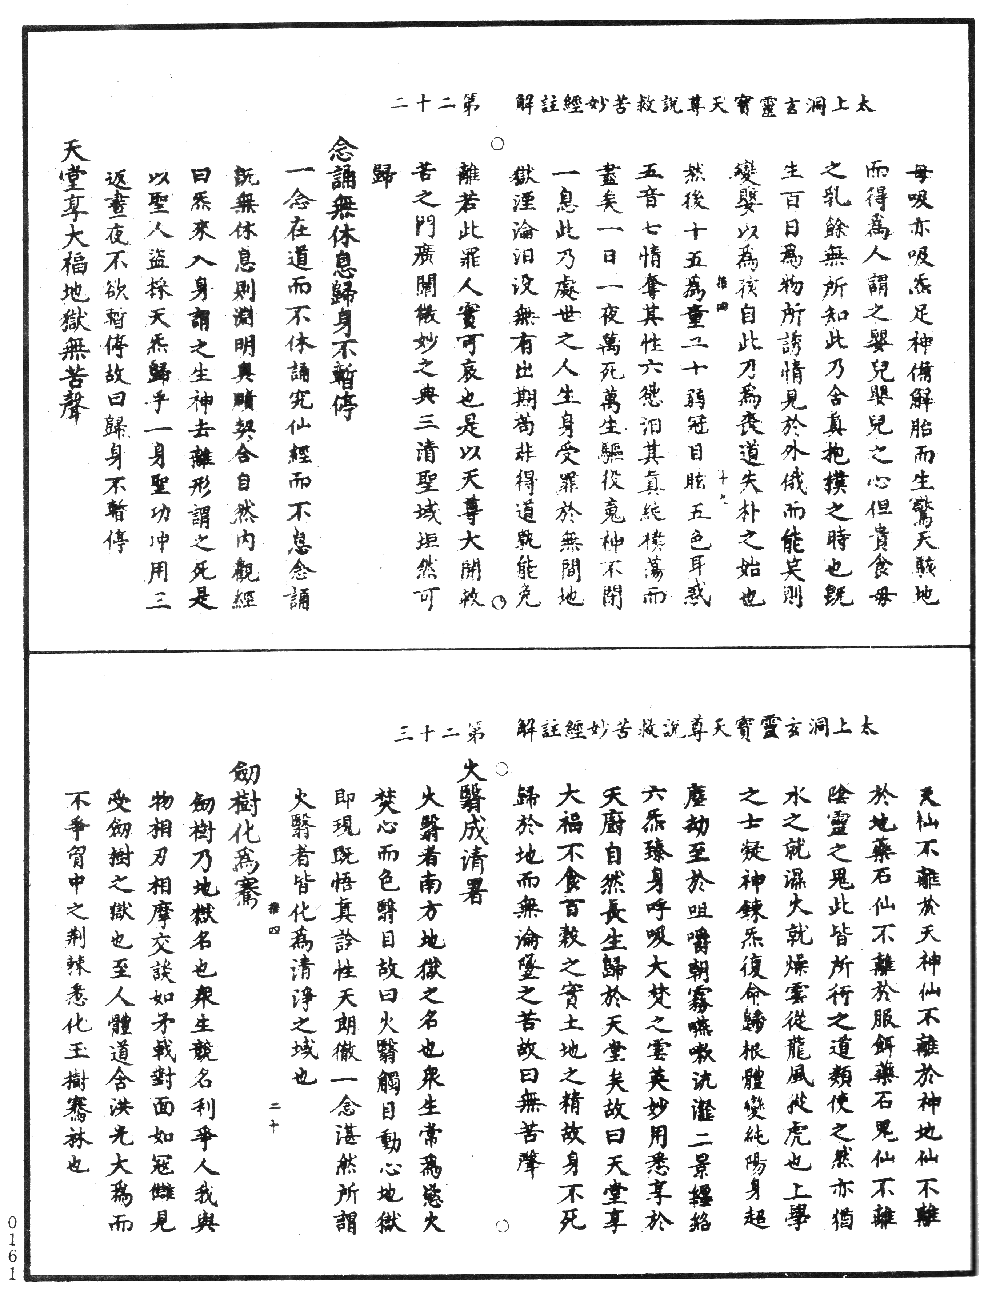 太上洞玄靈寶天尊說救苦妙經註解　第二十二
母吸亦吸炁足神備解胎而生驚天駭地
而得爲人謂之嬰兒嬰兒之心但貴食母
之乳餘無所知此乃含真抱樸之時也既
生百日爲物所誘情見於外俄而能笑則
變嬰以爲孩自此乃爲喪道失朴之始也
推四　十九
然後十五爲童二十弱冠目眩五色耳惑
五音七情奪其性六慾汩其真純樸蕩而
盡矣一日一夜萬死萬生驅役䰟神不閑
一息此乃處世之人生身受罪於無間地
獄湮淪汨没無有出期苟非得道孰能免
離若此罪人實可哀也是以天尊大開救
苦之門廣闡微妙之典三清聖域坦然可
歸
念誦無休息歸身不暫停
一念在道而不休誦究仙經而不息念誦
既無休息則淵明奥賾契合自然内觀經
曰炁來入身謂之生神去離形謂之死是
以聖人盜採天炁歸乎一身聖功冲用三
返晝夜不欲暫停故曰歸身不暫停
天堂享大福地獄無苦聲
太上洞玄靈寶天尊說救苦妙經註解　第二十三
天仙不離於天神仙不離於神地仙不離
於地藥石仙不離於服餌藥石鬼仙不離
陰靈之鬼此皆所行之道類使之然亦猶
水之就濕火就燥雲從龍風從虎也上學
之士凝神鍊炁復命歸根體變純陽身超
塵劫至於咀嚼朝霧嚥漱沆瀣二景纏絡
六炁臻身呼吸大梵之雲英妙用悉享於
天廚自然長生歸於天堂矣故曰天堂享
大福不食百穀之實土地之精故身不死
歸於地而無淪墜之苦故曰無苦聲
火翳成清署
火翳者南方地獄之名也衆生常爲慾火
焚心而色翳目故曰火翳觸目動心地獄
即現既悟真詮性天朗徹一念湛然所謂
火翳者皆化爲清浄之域也
推四　二十
劒樹化爲騫
劒樹乃地獄名也衆生競名利爭人我與
物相刃相摩交談如矛戟對面如寇讎見
受劒樹之獄也至人體道含洪光大爲而
不爭胷中之荆棘悉化玉樹騫林也
0161